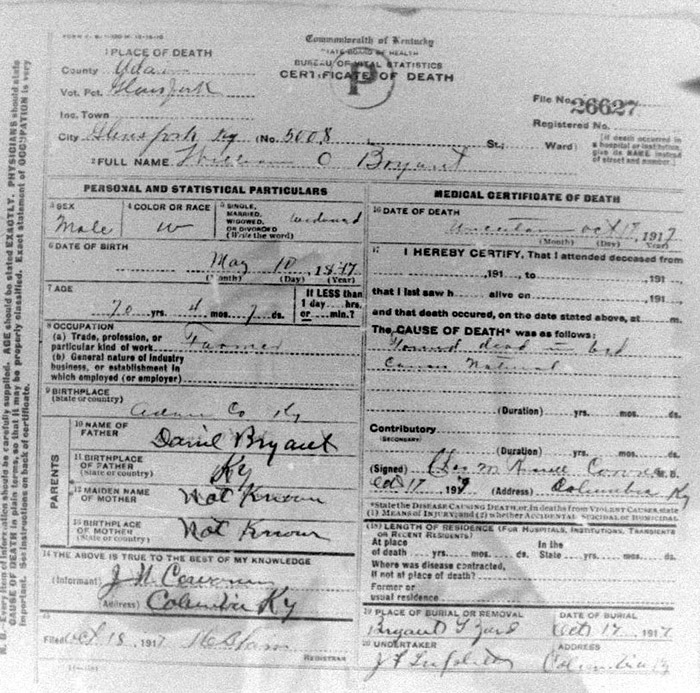 Commonwealth of Kentucky
STATE BOARD OF HEALTH
BUREAU OF VITAL STATISTICS
CERTIFICATE OF DEATH
P
1 PLACE OF DEATH
County Adair
Vot. Pct. Glensfork
Inc. Town
City Glensfork Ky (No. 5008 , St.; Ward)
File No. 26627
Registered No.
[If death occurred in a hospital or institution, give its NAME instead of street and number.]
2 FULL NAME William O Bryant
PERSONAL AND STATISTICAL PARTICULARS
3 SEX
Male
4 COLOR OR RACE
W
5 SINGLE, MARRIED, WIDOWED, OR DIVORCED (Write the word)
Widowed
6 DATE OF BIRTH
May 10, 1847
(Month) (Day) (Year)
7 AGE
70 yrs. 4 mos. 7 ds.
If LESS than 1 day hrs. or min.?
8 OCCUPATION
(a) Trade, profession, or particular kind of work Farmer
(b) General nature of industry business, or establishment in which employed (or employer)
9 BIRTHPLACE
(State or country)
Adair Co Ky
PARENTS
10 NAME OF FATHER
Daniel Bryant
11 BIRTHPLACE OF FATHER (State or country)
Ky
12 MAIDEN NAME OF MOTHER
Not Known
13 BIRTHPLACE OF MOTHER (State or country)
Not Known
14 THE ABOVE IS TO THE BEST OF MY KNOWLEDGE
(Informant)
(Address) Columbia Ky
15
Filed Oct 18, 1917
REGISTRAR
MEDICAL CERTIFICATE OF DEATH
16 DATE OF DEATH
Oct 17, 1917
(Month) (Day) Year)
17 I HEREBY CERTIFY, That I attended deceased from
, 191 , to , 191 ,
that I last saw h alive on , 191 ,
and that death occured, on the date stated above, at m.
The CAUSE OF DEATH* was as follows:
Found dead in bed
Cause Natural
(Duration) yrs. mos. ds.
Contributory
(SECONDARY)
(Duration) yrs. mos. ds.
(Signed) M.D.
Oct 17 191 (Address) Columbia Ky
*State the DISEASE CAUSING DEATH, or, in deaths from VIOLENT CAUSES, state (1) MEANS OF INJURY; and (2) whether ACCIDENTAL SUICIDAL or HOMICIDAL
(18) LENGTH OF RESIDENCE (FOR HOSPITALS, INSTITUTIONS, TRANSIENTS OR RECENT RESIDENTS)
At place of death yrs. mos. ds. In the State yrs. mos. ds.
Where was disease contracted, if not at place of death?
Former or usual residence
19 PLACE OF BURIAL OR REMOVAL
Bryant G Yard
DATE OF BURIAL
Oct 17, 1917
20 UNDERTAKER
ADDRESS
Columbia Ky
AGE should be stated EXACTLY. PHYSICIANS should state
CAUSE OF DEATH in plain terms, so that it may be properly classified. Exact statement of OCCUPATION is very
important. See instructions on back of certificate.